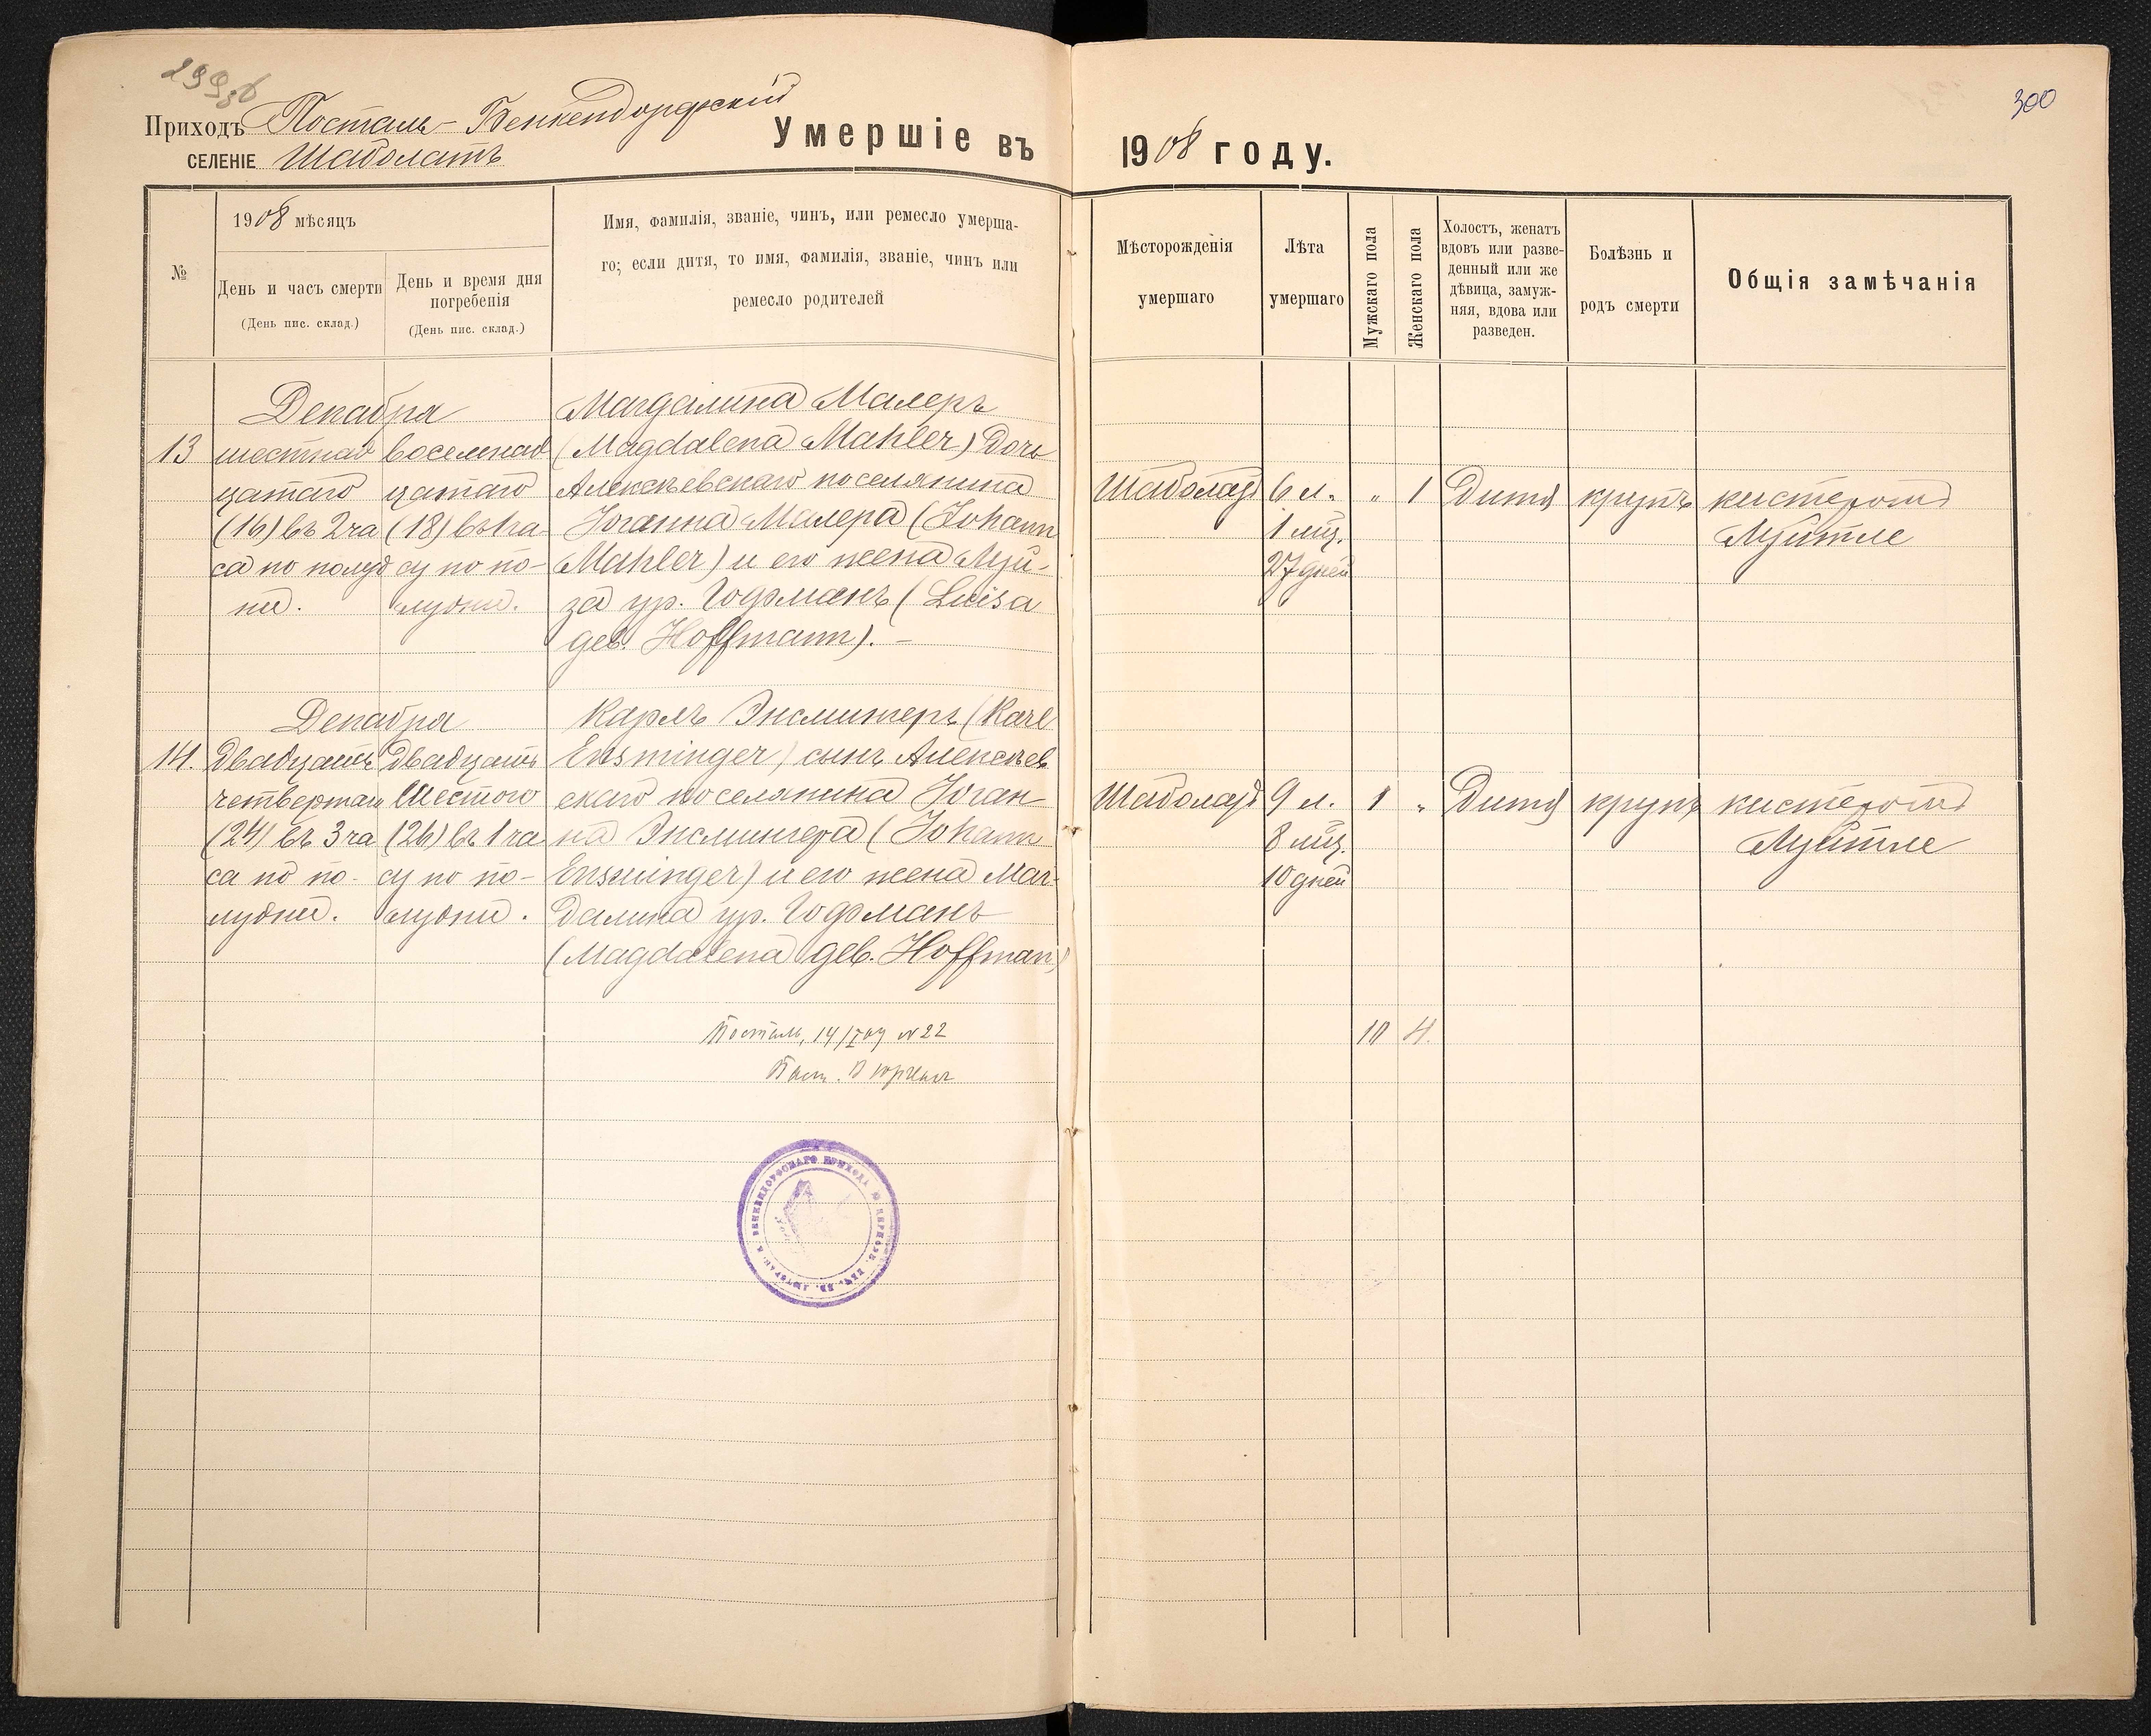 299об
300
Приходъ Посталь-Бенкендорфскій
селеніе Шаболатъ
Умершіе въ 1908 году.
№
1908 мѣсяцъ
День и часъ смерти
(День пис. склад.)
День и время дня
погребенія
(День пис. склад.)
Имя, фамилія, званіе, чинъ, или ремесло умерша-
го; если дитя, то имя, фамилія, званіе, чинъ или
ремесло родителей
Мѣсторожденія
умершаго
Лѣта
умершаго
Мужскаго пола
Женскаго пола
Холостъ, женатъ
вдовъ или разве-
денный или же
дѣвица, замуж-
няя, вдова или
разведен.
Болѣзнь и
родъ смерти
Общія замѣчанія
13
Декабря
шестнад
цатаго
(16) въ 2 ча
са по полуд
ни.
восемнад
цатаго
(18) въ 1 ча-
су по по-
лудни.
Магдалина Малеръ
(Magdalena Mahler) дочь
Алексѣевскаго поселянина
Іоганна Малера (Johann
Mahler) и его жена Луи-
за ур. Гофманъ (Luisa
geb. Hoffmann). —
Шаболадъ
6 л.
1 мѣц.
27 дней
„
1
Дитя
крупъ
кистеромъ
Луитле
14.
Декабря
Двадцать
четвертаго
(24) въ 3 ча
са по по-
лудни.
Двадцать
шестого
(26) въ 1 ча
су по по-
лудни.
Карлъ Энсмингеръ (Karl
Ensminger) сынъ Алексѣев
скаго поселянина Іоган
на Энсмингера (Johann
Ensminger) и его жена Маг-
далина ур. Гофманъ
(Magdalena geb. Hoffman)
Шаболадъ
9 л.
8 мѣц.
10 дней
1
„
Дитя
крупъ
кистеромъ
Луитле
10 4.
Посталь, 14/I 09 № 22
Паст.